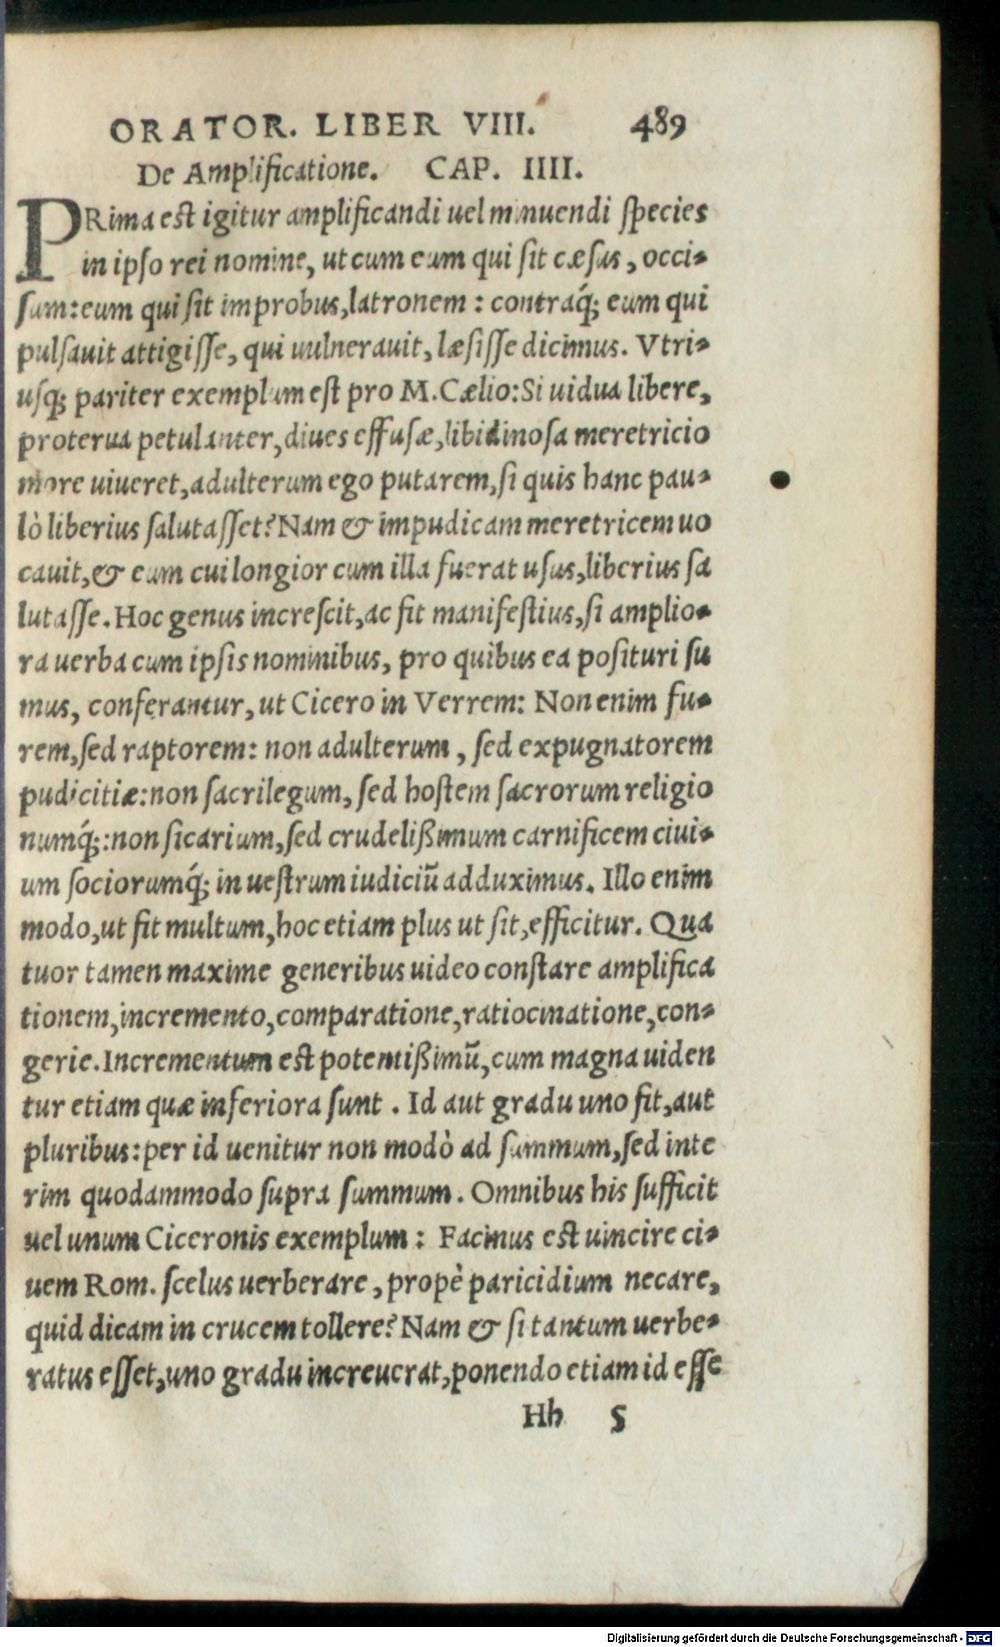 ORATOR. LIBER VIII. 489
De Amplificatione. CAP. IIII.
PRima est igitur amplificandi uel minuendi species
in ipso rei nomine, ut cum eum qui sit cæsus, occi-
sum: eum qui sit improbus, latronem: contraq́; eum qui
pulsauit attigisse, qui uulnerauit, læsisse dicimus. Vtri-
usq; pariter exemplum est pro M. Cælio: Si uidua libere,
proterua petulanter, diues effusæ, libidinosa meretricio
more uiueret, adulterum ego putarem, si quis hanc pau-
lò liberius salutasset? Nam & impudicam meretricem uo
cauit, & eum cui longior cum illa fuerat usus, liberius sa
lutasse. Hoc genus increscit, ac fit manifestius, si amplio-
ra uerba cum ipsis nominibus, pro quibus ea posituri su
mus, conferantur, ut Cicero in Verrem: Non enim fu-
rem, sed raptorem: non adulterum, sed expugnatorem
pudicitiæ: non sacrilegum, sed hostem sacrorum religio
numq́;: non sicarium, sed crudelißimum carnificem ciui-
um sociorumq́; in uestrum iudiciū adduximus. Illo enim
modo, ut fit multum, hoc etiam plus ut sit, efficitur. Qua
tuor tamen maxime generibus uideo constare amplifica
tionem, incremento, comparatione, ratiocinatione, con-
gerie. Incrementum est potentißimū, cum magna uiden
tur etiam quæ inferiora sunt. Id aut gradu uno fit, aut
pluribus: per id uenitur non modò ad summum, sed inte
rim quodammodo supra summum. Omnibus his sufficit
uel unum Ciceronis exemplum: Facinus est uincire ci-
uem Rom. scelus uerberare, propè paricidium necare,
quid dicam in crucem tollere? Nam & si tantum uerbe-
ratus esset, uno gradu increuerat, ponendo etiam id esse
Hh 5
Digitalisierung gefördert durch die Deutsche Forschungsgemeinschaft - DFG